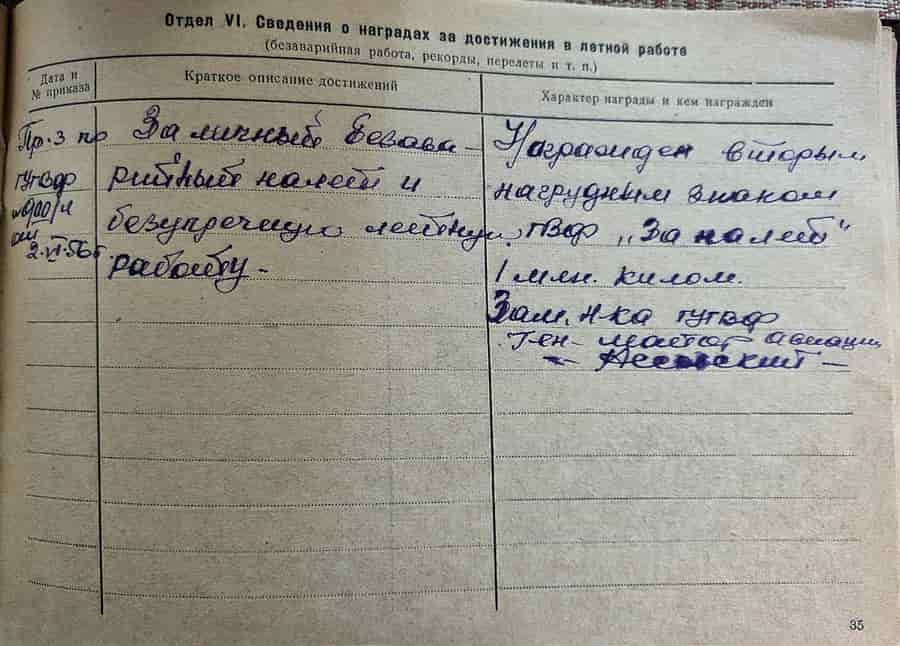 Отдел VI. Сведения о наградах за достижения в летной работе
(безаварийная работа, рекорды, перелеты и т. п.)
Дата и
№ приказа
Краткое описание достижений
Характер награды и кем награжден
Пр-з по
ГУГВФ
от
2·VI·56г
За личный безава-
рийный налет и
безупречную летную
работу -
Награжден вторым
нагрудным знаком
ГВФ „За налет"
1 млн. килом.
Зам. н-ка ГУГВФ
Ген-майор авиации
35